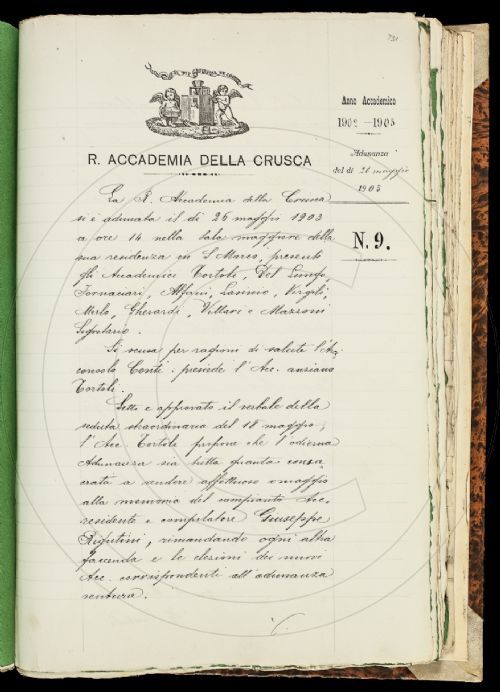 731
Anno Accademico
1902-1903
Adunanza
del dì 26 maggio
1903
N. 9.
R. ACCADEMIA DELLA CRUSCA
La R. Accademia della Crusca
si è adunata il dì 26 maggio 1903
a ore 14 nella sala maggiore della
sua residenza in S. Marco, presenti
gli Accademici Tortoli, Del Lungo,
Fornaciari, Alfani, Lasinio, Virgili,
Merlo, Gherardi, Villari e Mazzoni
Segretario.
Si scusa per ragioni di salute l'Ar
ciconsolo Conti: presiede l'Acc. anziano
Tortoli.
Letto e approvato il verbale della
seduta straordinaria del 18 maggio,
l'Acc. Tortoli propone che l'odierna
Adunanza sia tutta quanta consa
crata a rendere affettuoso omaggio
alla memoria del compianto Acc.
residente e compilatore Giuseppe
Rigutini, rimandando ogni altra
faccenda e le elezioni dei nuovi
Acc. corrispondenti all'adunanza
ventura.